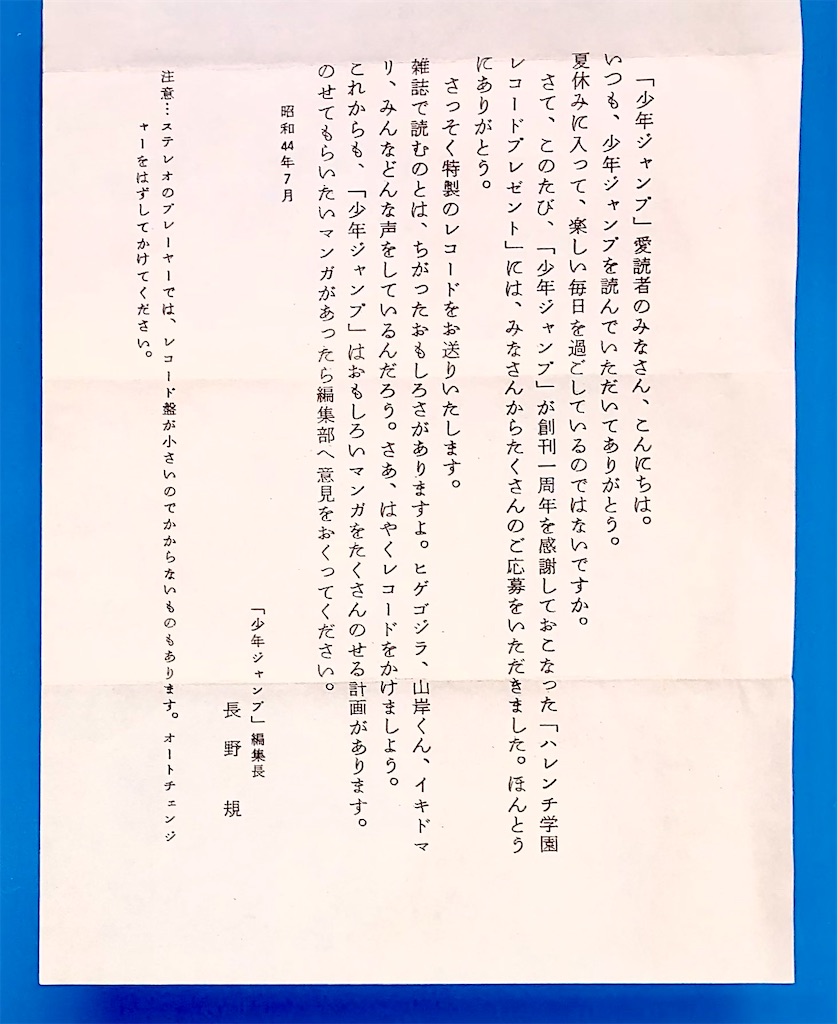 「少年ジャンプ」愛読者のみなさん、こんにちは。
いつも、少年ジャンプを読んでいただいてありがとう。
夏休みに入って、楽しい毎日を過ごしているのではないですか。
さて、このたび、「少年ジャンプ」が創刊一周年を感謝しておこなった「ハレンチ学園
レコードプレゼント」には、みなさんからたくさんのご応募をいただきました。ほんとう
にありがとう。
さっそく特製のレコードをお送りいたします。
雑誌で読むのとは、ちがったおもしろさがありますよ。ヒゲゴジラ、山岸くん、イキドマ
リ、みんなどんな声をしているんだろう。さあ、はやくレコードをかけましよう。
これからも、「少年ジャンプ」はおもしろいマンガをたくさんのせる計画があります。
のせてもらいたいマンガがあったら編集部へ意見をおくってください。
昭和44年7月
「少年ジャンプ」編集長
長野規
注意…ステレオのプレーヤーでは、レコード盤が小さいのでかからないものもあります。オートチェンジ
ャーをはずしてかけてください。